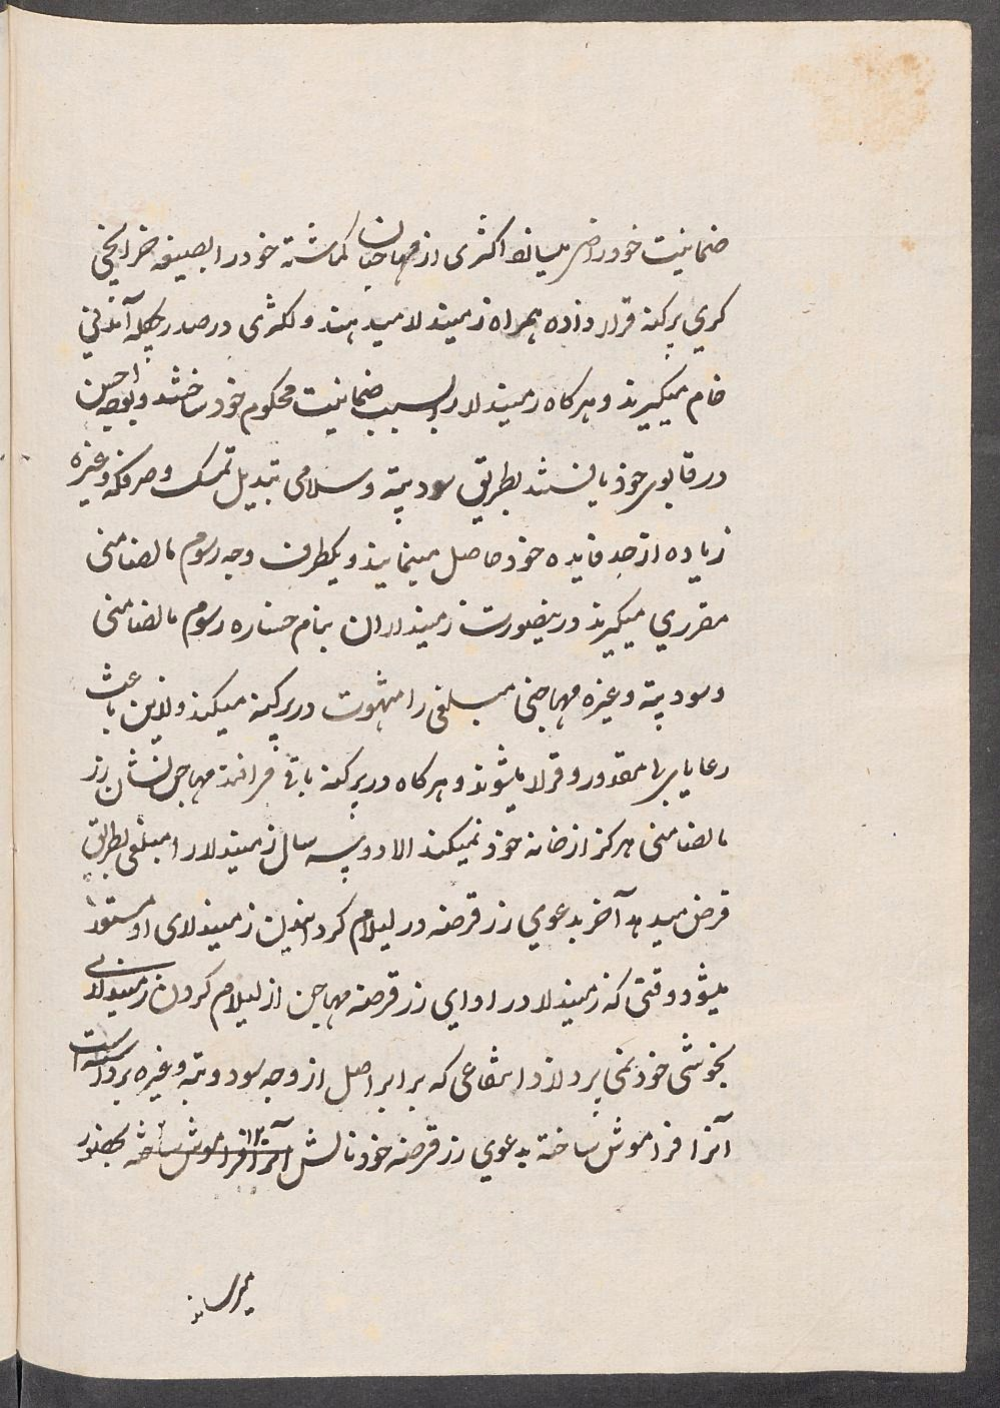 ضمانیت خود راضی میسازند اکثری از مهاجنان کماشته خود را بصیغه خزانچی
کری پرکنه قرار داده همراه زمیندار میدهند و لکثری در صدر جمله آمدنی
خام میگیرند و هرکاه زمیندار را بسبب ضمانیت محکوم خود ساختند و بوجه احسن
در قابوی خود یافتند بطریق سود بته و سلامی تبدیل تمسک و صرفکه وغیره
زیاده از حد فایده خود حاصل مینمایند و یکطرف وجه رسوم مالضامنی
مقرری میکیرند درینصورت زمینداران بنام خساره رسوم مالضامنی
و سود بته وغیره مهاجنی مبلغی را مثبوت در پرکنه میکند و ازین باعث
رعایای بی مقدور و قرار میشوند و هرکاه در پرکنه باقی فرا افتد مهاجن نشان زر
مالضامنی هرکز از خانه خود نمیکند الا دو سه سال زمیندار را مبلغی بطریق
قرض میدهد آخر بدعوی زر قرضه در لیلام کردانیدن زمینداری او مستعد
میشود و وقتی که زمیندار در ادای زر قرضه مهاجن از لیلام کردن زمینداری
بخوشی خود نمی پردازد انتفاعی که برابر اصل از وجه سود و بته وغیره برداشته است
آنرا فراموش ساخته بدعوی زر قرضه خود نالش آنرا فراموش ساخته بحضور
میرساند